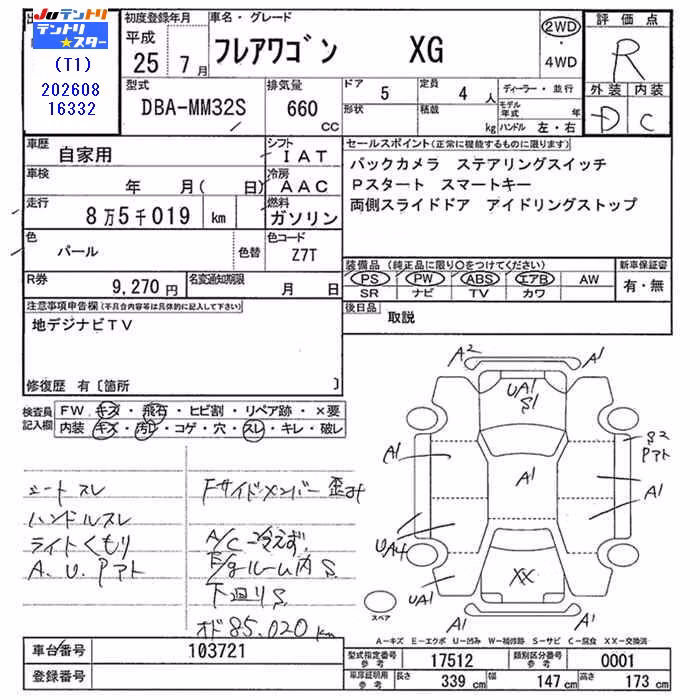 JUテントリ
テントリ
テントリ★スター
(T1)
202608
16332
初度登録年月
平成
25 7月
車名・グレード
フレアワゴン XG
2WD
・
4WD
評価点
R
外装 内装
D C
型式
DBA-MM32S
排気量
660
CC
ドア 5
定員 4 人
形状
積載 kg
ディーラー・並行
モデル年式 年
ハンドル 左・右
車歴
自家用
シフト
IAT
車検
年 月( 日)
冷房
AAC
走行
8万5千019 km
燃料
ガソリン
色
パール
色替
色コード
Z7T
R券
9,270円
名変通知期限
月 日
セールスポイント(正常に機能するものに限ります)
バックカメラ ステアリングスイッチ
Pスタート スマートキー
両側スライドドア アイドリングストップ
装備品(純正品に限り○をつけてください)
PS PW ABS エアB AW
SR ナビ TV カワ
新車保証書
有・無
後日品 取説
注意事項申告欄(不具合内容等は具体的に記入して下さい)
地デジナビTV
修復歴 有〔箇所 〕
検査員
記入欄
FW.キズ・飛石・ヒビ割・リペア跡・×要
内装.キズ・汚レ・コゲ・穴・スレ・キレ・破レ
シートスレ
ハンドルスレ
ライトくもり
A.U.Pアト
Fサイドメンバー歪み
A/C冷えず
E/gルーム内S
下廻りS
オド85.020km
A2
A1
UA1
S1
A1
A1
A1
A1
S2
Pアト
A1
UA4
UA1
XX
A1
A1
スペア
A-キズ E-エクボ U-凹み W-補修跡 S-サビ C-腐食 XX-交換済
車台番号
103721
登録番号
型式指定番号
参考
17512
類別区分番号
参考
0001
車庫証明用
参考
長さ 339 cm
幅 147 cm
高さ 173 cm